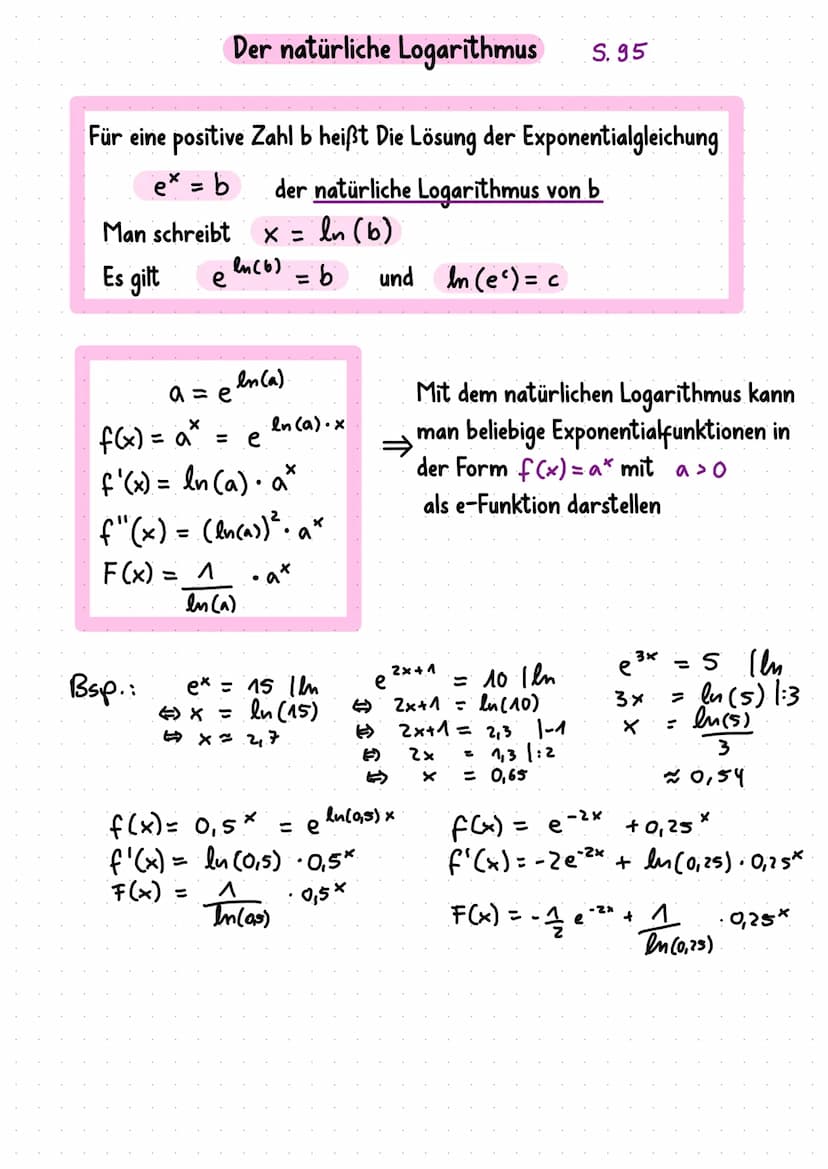 Der natürliche Logarithmus S. 95
Für eine positive Zahl b heißt Die Lösung der Exponentialgleichung
eˣ = b der natürliche Logarithmus von b
Man schreibt x = ln (b)
Es gilt e^ln(b) = b und ln (eᶜ) = c
a = e^ln(a)
f(x) = aˣ = e^ln(a)·x
f'(x) = ln(a) · aˣ
f''(x) = (ln(a))² · aˣ
F(x) = 1/ln(a) · aˣ
⇒ Mit dem natürlichen Logarithmus kann
man beliebige Exponentialfunktionen in
der Form f(x) = aˣ mit a > 0
als e-Funktion darstellen
Bsp.: eˣ = 15 | ln
⇔ x = ln(15)
⇔ x ≈ 2,7
e^2x+1 = 10 | ln
⇔ 2x+1 = ln(10)
⇔ 2x+1 = 2,3 |-1
⇔ 2x = 1,3 |:2
⇔ x = 0,65
e^3x = 5 | ln
3x = ln(5) |:3
x = ln(5)/3
≈ 0,54
f(x) = 0,5ˣ = e^ln(0,5)x
f'(x) = ln(0,5) · 0,5ˣ
F(x) = 1/ln(0,5) · 0,5ˣ
f(x) = e^-2x + 0,25ˣ
f'(x) = -2e^-2x + ln(0,25) · 0,25ˣ
F(x) = - 1/2 e^-2x + 1/ln(0,25) · 0,25ˣ